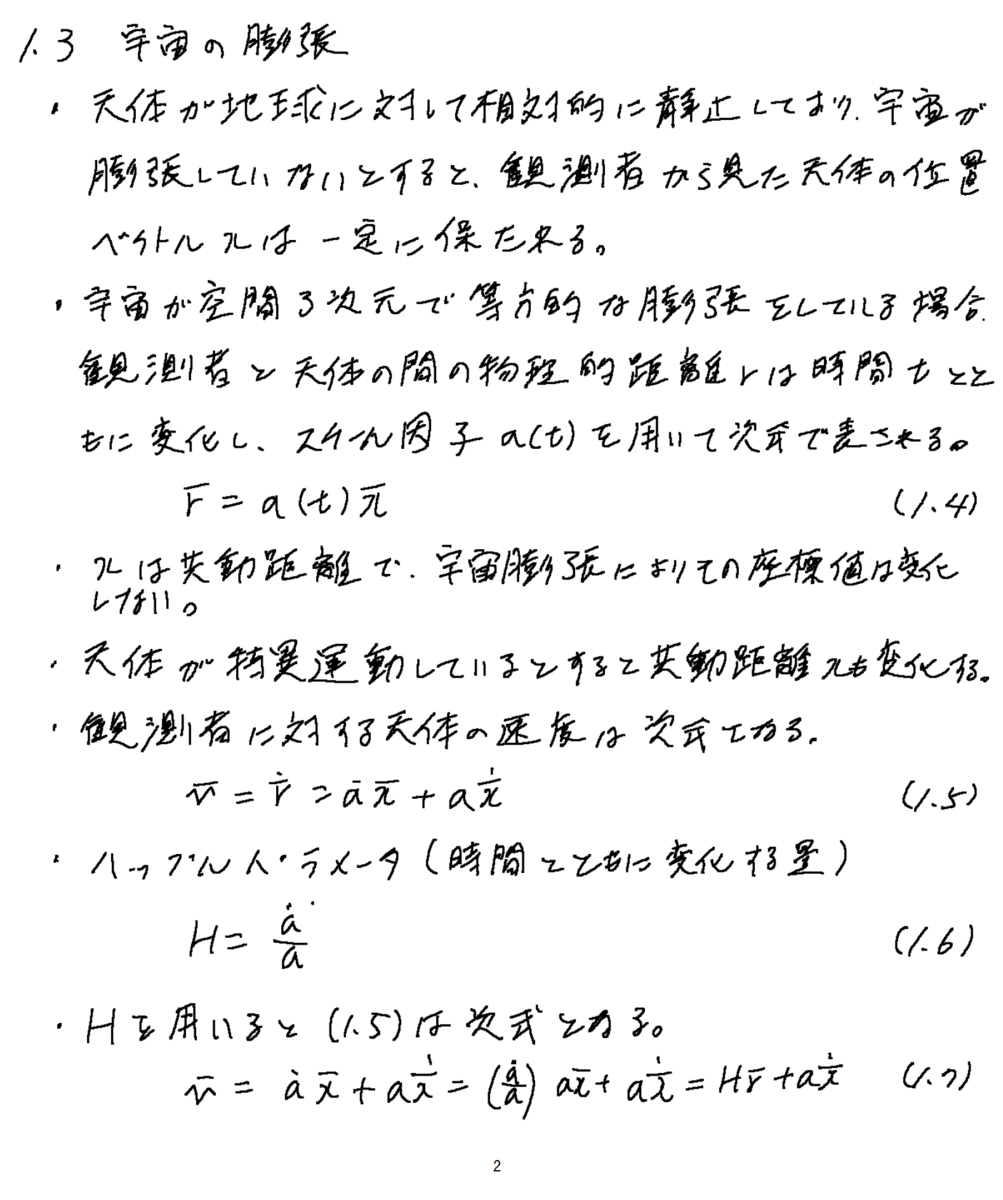 1.3 宇宙の膨張
・天体が地球に対して相対的に静止しており、宇宙が
膨張していないとすると、観測者から見た天体の位置
ベクトルxは一定に保たれる。
・宇宙が空間3次元で等方的な膨張をしている場合、
観測者と天体の間の物理的距離rは時間tとと
もに変化し、スケール因子a(t)を用いて次式で表される。
r̄ = a(t)x̄ (1.4)
・xは共動距離で、宇宙膨張によりその座標値は変化
しない。
・天体が特異運動しているとすると共動距離xも変化する。
・観測者に対する天体の速度は次式となる。
v̄ = ṙ = ȧx̄ + aẋ̄ (1.5)
・ハッブルパラメータ(時間とともに変化する量)
H = ȧ/a (1.6)
・Hを用いると(1.5)は次式となる。
v̄ = ȧx̄ + aẋ̄ = (ȧ/a) ax̄ + aẋ̄ = Hr̄ + aẋ̄ (1.7)
2